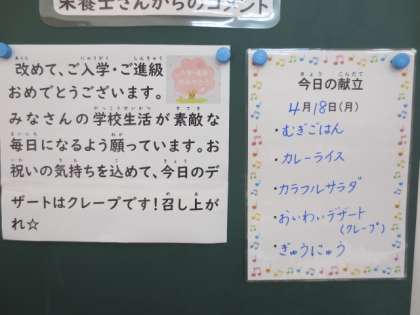 栄養士さんからのコメント
改めて、ご入学・ご進級
おめでとうございます。
みなさんの学校生活が素敵な
毎日になるよう願っています。お
祝いの気持ちを込めて、今日のデ
ザートはクレープです！召し上が
れ☆
今日の献立
4月18日(月)
・むぎごはん
・カレーライス
・カラフルサラダ
・おいわいデザート
(クレープ)
・ぎゅうにゅう